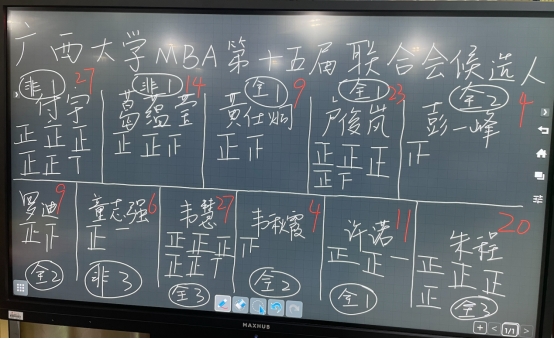 广西大学MBA第十五届联合会候选人
非1 27
付宇
正正正
正正丅
非1 14
葛蕴莹
正正正
全1 9
贾仕炯
正正
全1 23
卢俊岚
正正正
正下
全2 4
彭一峰
正
罗迪 9
正正
全2
童志强 6
正一
非3
韦慧 27
正正正
正正丅
全3
韦秋霞 4
正
全2
许诺 11
正正一
全1
朱程 20
正正正
正
全3
MAXHUB
1/1